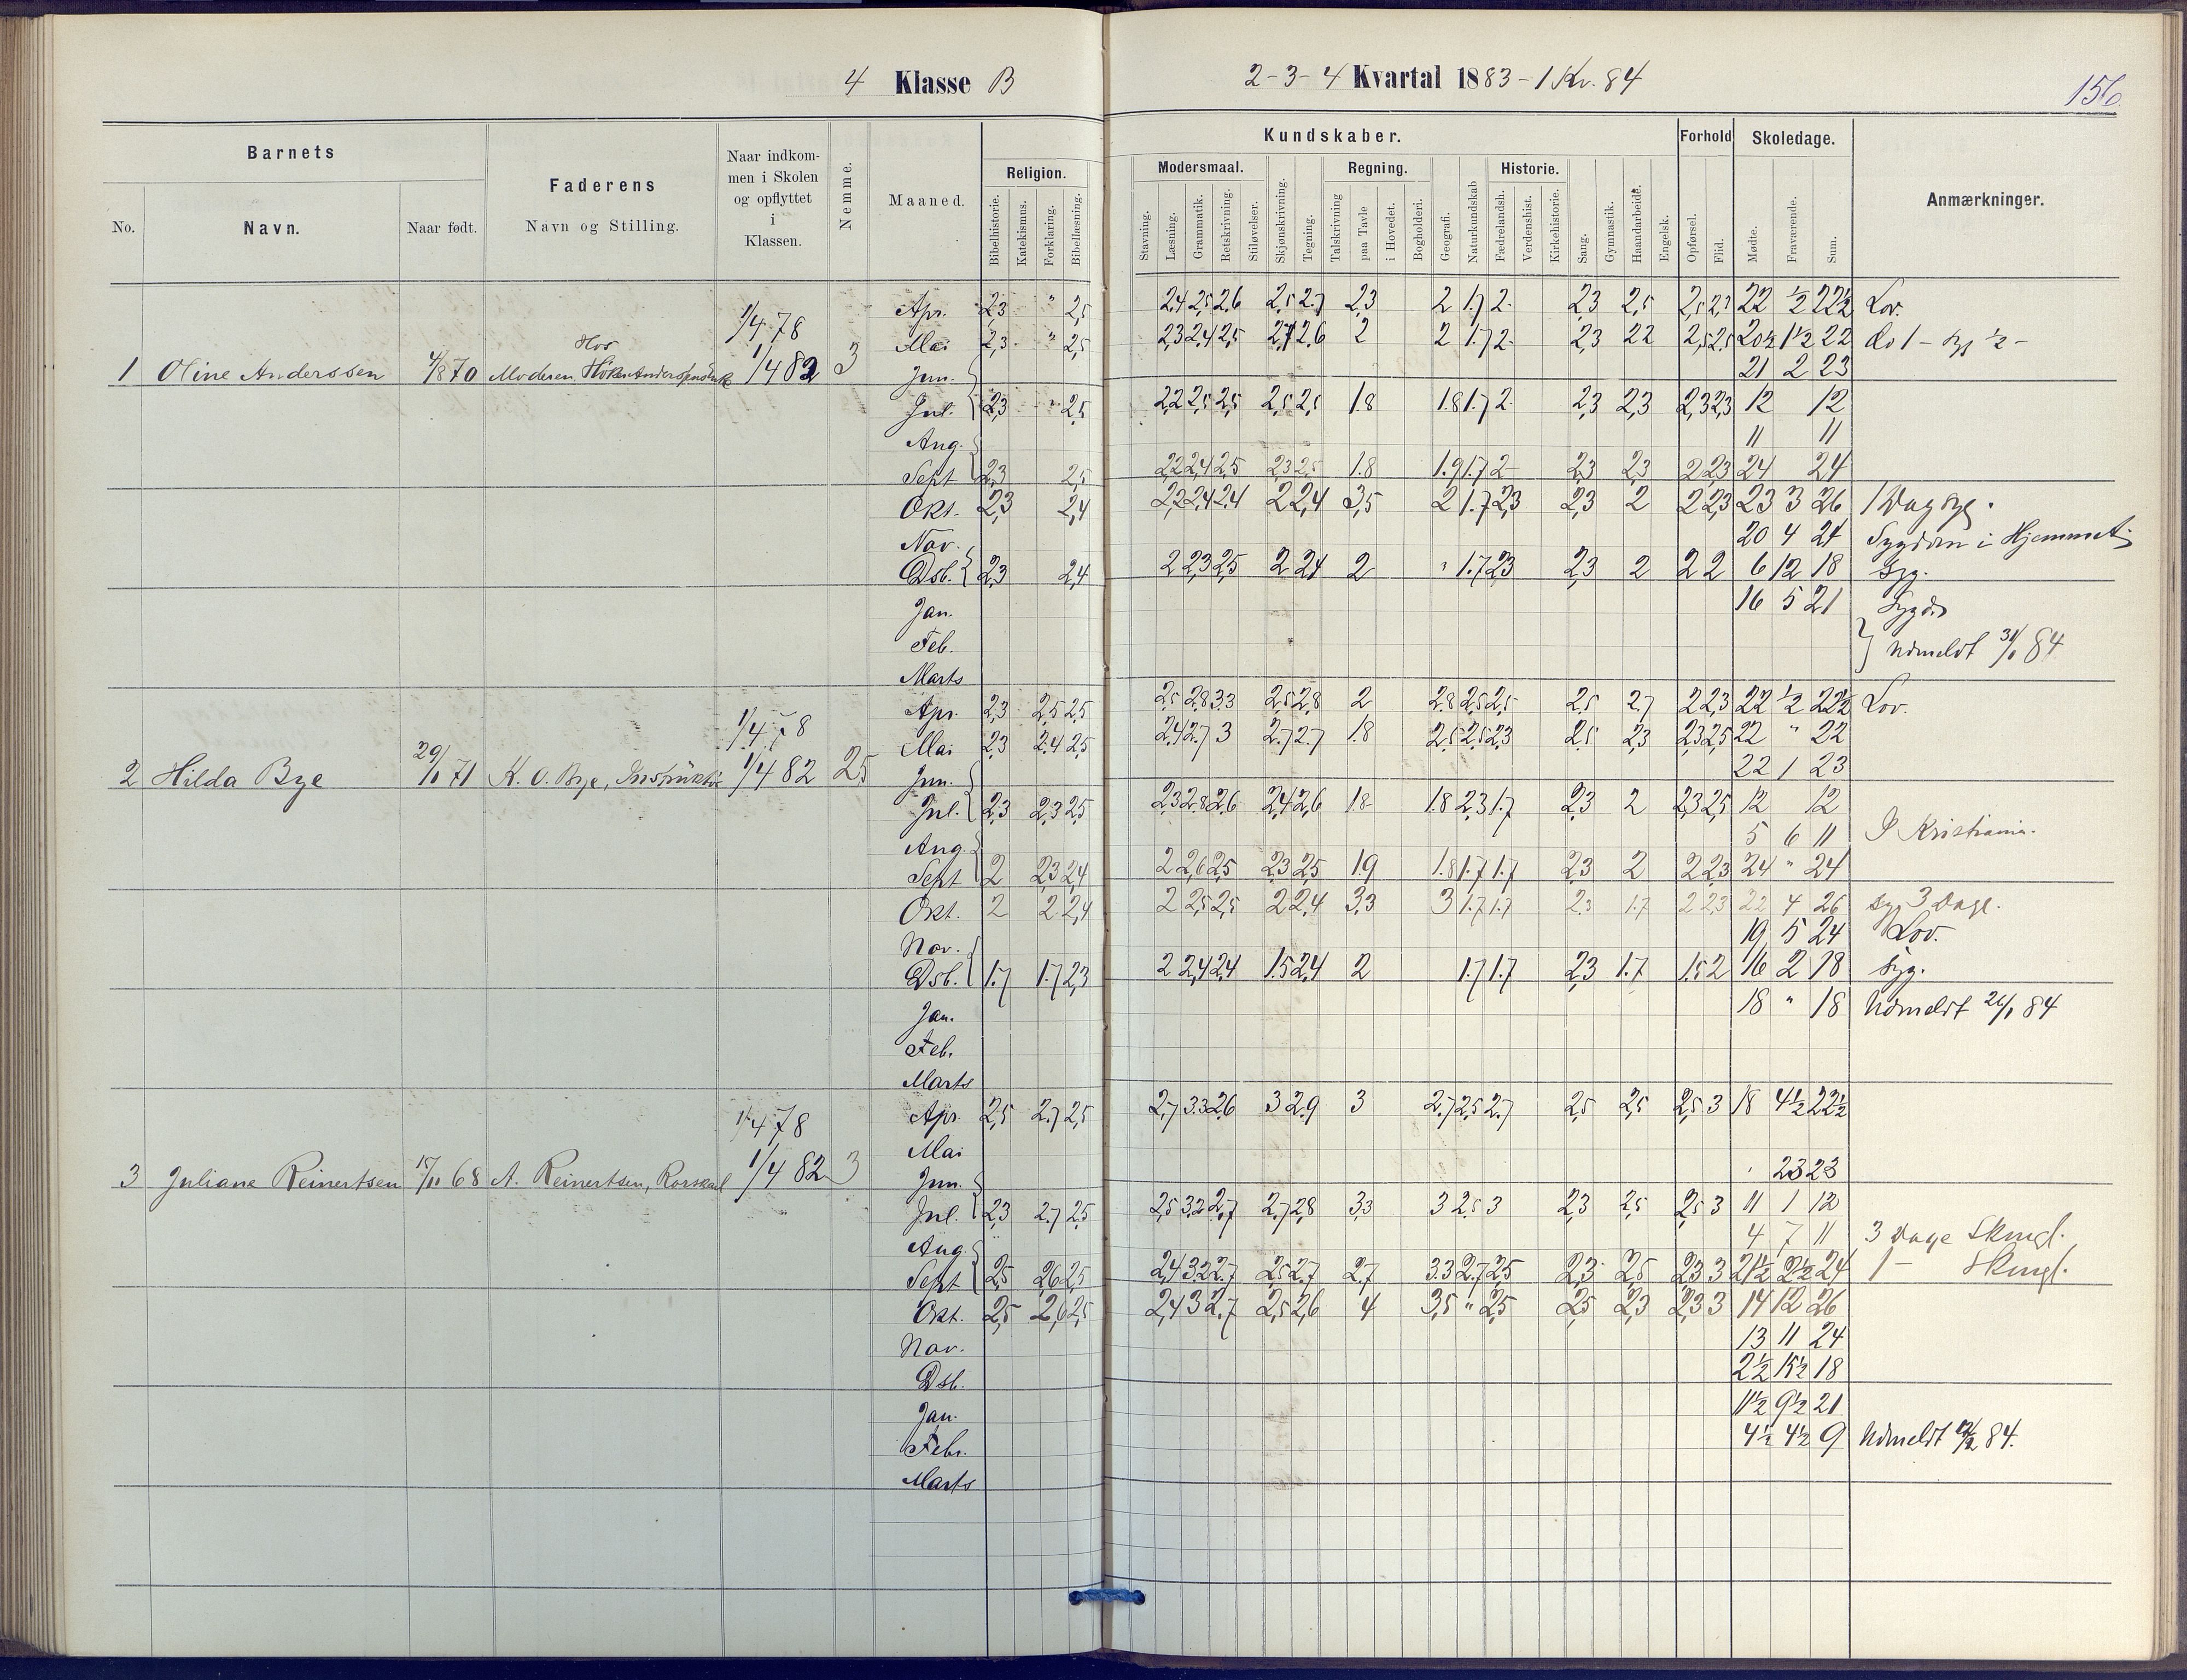 4 Klasse B
2-3-4 Kvartal 1883-1 Kv. 84
156
Barnets
No.
Navn.
Naar født.
Faderens
Navn og Stilling.
Naar indkom-
men i Skolen
og opflyttet
i
Klassen.
Nemme.
Maaned.
Religion.
Bibelhistorie.
Katekismus.
Forklaring.
Bibellæsning.
Kundskaber.
Modersmaal.
Stavning.
Læsning.
Grammatik.
Retskrivning.
Stiløvelser.
Skjønskrivning.
Tegning.
Regning.
Talskrivning
paa Tavle
i Hovedet.
Bogholderi.
Geografi.
Naturkundskab
Historie.
Fædrelandsh.
Verdenshist.
Kirkehistorie.
Sang.
Gymnastik.
Haandarbeide.
Engelsk.
Forhold
Opførsel.
Flid.
Skoledage.
Mødte.
Fraværende.
Sum.
Anmærkninger.
1 Oline Anderssen 4/8 70 Hos Moderen 1/4 78 1/4 82 3
Apr. 2,3 " 2,5 2,4 2,5 2,6 2,5 2.7 2,3 2 1.7 2 2,3 2,5 2,5 2,3 22 ½ 22½ Lov.
Mai 2,3 " 2,5 2,3 2,4 2,5 2,7 2,6 2 2 1.7 2 2,3 22 2,5 2,5 20½ 1½ 22 do 1 - syg ½ -
Jun. 21 2 23
Jul. 2,3 " 2,5 2,2 2,5 2,5 2,5 2,5 1.8 1.8 1.7 2 2,3 2,3 2,3 2,3 12 12
Aug. 11 11
Sept 2,3 2,5 2,2 2,4 2,5 2,3 2,5 1.8 1.9 1.7 2 2,3 2,3 2 2,3 24 24
Okt. 2,3 2,4 2,2 2,4 2,4 2 2,4 3,5 2 1.7 2,3 2,3 2 2 2,3 23 3 26 1 Dag syg.
Nov. 20 4 24 Sygdom i Hjemmet
Dsb. 2,3 2,4 2 2,3 2,5 2 2,4 2 " 1.7 2,3 2,3 2 2 2 6 12 18 Syg.
Jan. 16 5 21 Sygd.
Feb. Udmeldt 31/1 84
Marts
2 Hilda Bye 29/1 71 K. O. Bye, Instruktør 1/4 78 1/4 82 2,5
Apr. 2,3 2,5 2,5 2,5 2,8 3.3 2,5 2,8 2 2.8 2,5 2,5 2,5 2.7 2 2,3 22 ½ 22½ Lov.
Mai 2,3 2.4 2,5 2,4 2.7 3 2.7 2.7 1.8 2,5 2,5 2,3 2,5 2,3 2,3 2,5 22 " 22
Jun. 22 1 23
Jul. 2,3 2,3 2,5 2,3 2.8 2,6 2,4 2,6 1.8 1.8 2,3 1.7 2,3 2 2,3 2,5 12 12
Aug. 5 6 11 I Kristiania.
Sept 2 2,3 2,4 2 2,6 2,5 2,3 2,5 1.9 1.8 1.7 1.7 2,3 2 2 2,3 24 " 24
Okt. 2 2 2,4 2 2,5 2,5 2 2,4 3,3 3 1.7 1.7 2,3 1.7 2 2,3 22 4 26 syg 3 Dage.
Nov. 19 5 24 Lov.
Dsb. 1.7 1.7 2,3 2 2,4 2,4 1.5 2,4 2 1.7 1.7 2,3 1.7 1.5 2 16 2 18 Syg.
Jan. 18 " 18 Udmeldt 26/1 84
Feb.
Marts
3 Juliane Reinertsen 15/11 68 A. Reinertsen, Rorskarl 1/4 78 1/4 82 3
Apr. 2,5 2.7 2,5 2,7 3.3 2,6 3 2.9 3 2.7 2,5 2.7 2,5 2,5 2,5 3 18 4½ 22½
Mai
Jun. 23 23
Jul. 2,3 2.7 2,5 2,5 3.2 2,7 2.7 2,8 3,3 3 2,5 3 2,3 2,5 2,5 3 11 1 12
Aug. 4 7 11 3 Dage Skmgl.
Sept 2,5 2,6 2,5 2,4 3.2 2.7 2,5 2.7 2,7 3.3 2.7 2,5 2,3 2,5 2,3 3 21½ 2½ 24 1 - Skmgl.
Okt. 2,5 2,6 2,5 2,4 3 2.7 2,5 2,6 4 3,5 " 2,5 2,5 2,3 2,3 3 14 12 26
Nov. 13 11 24
Dsb. 2½ 15½ 18
Jan. 11½ 9½ 21
Febr. 4½ 4½ 9 Udmeldt 12/2 84.
Marts